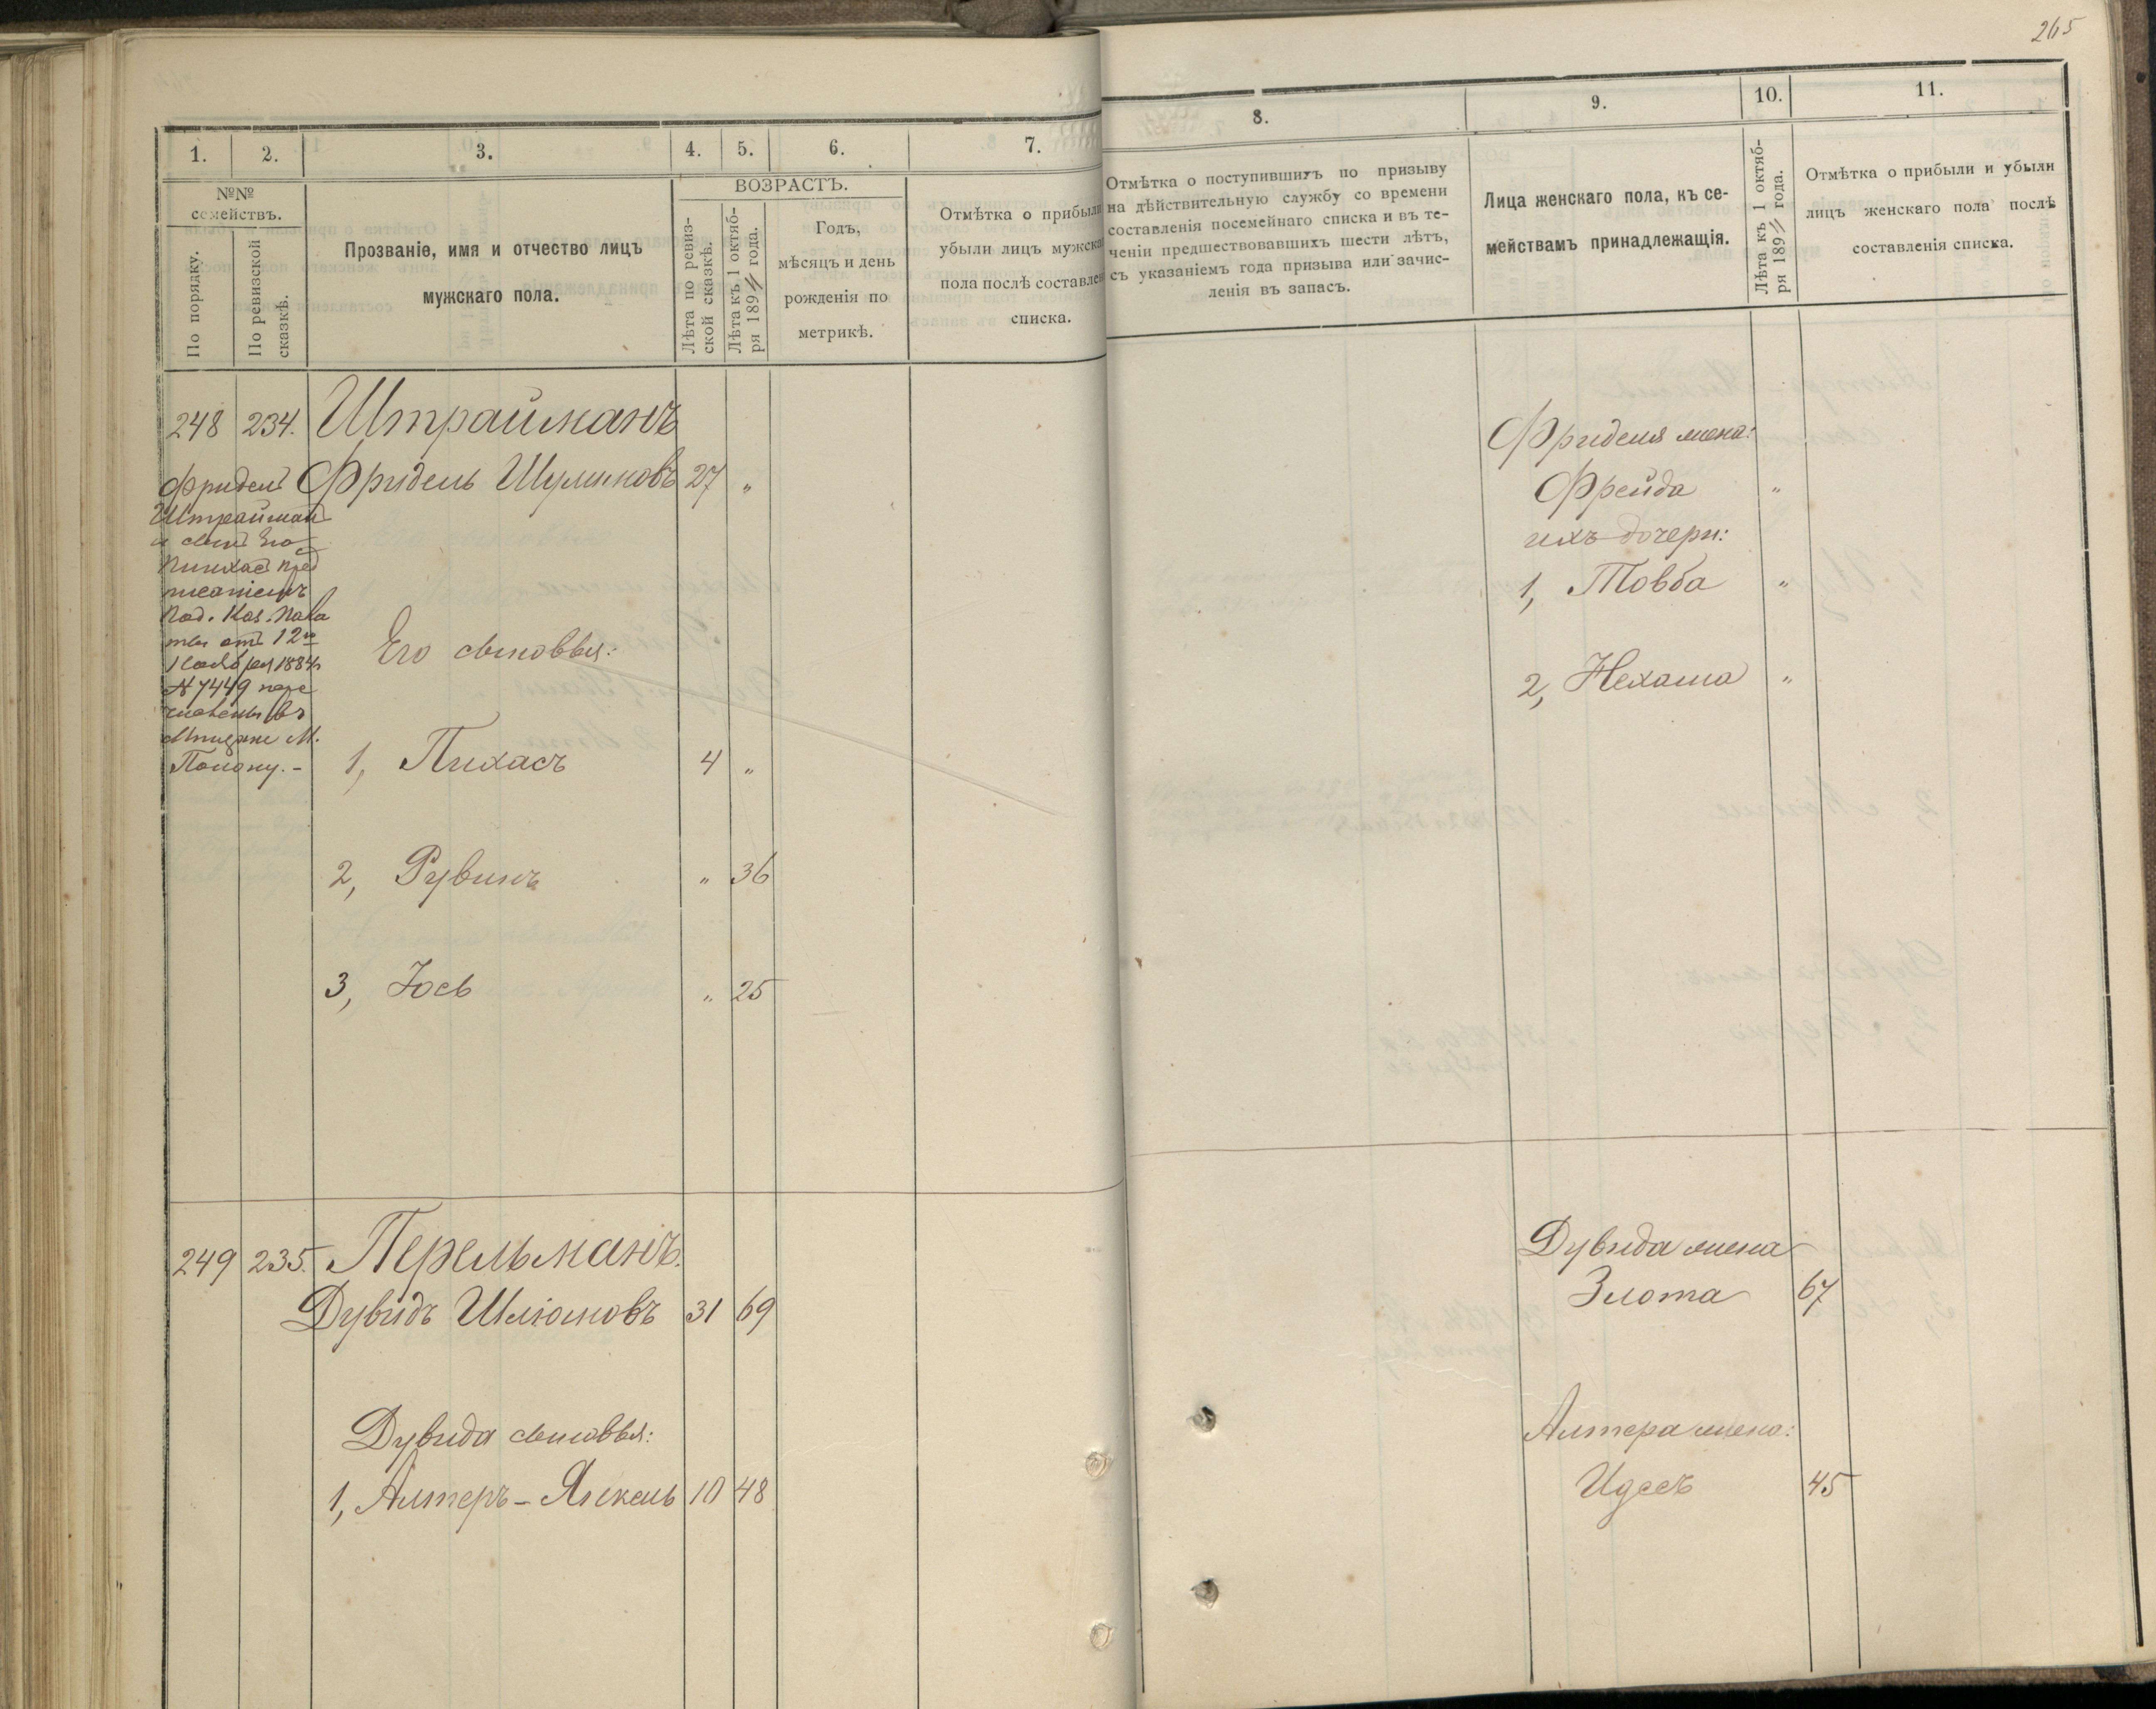 265
1.
2.
3.
4.
5.
6.
7.
№№
семействъ.
По порядку.
По ревизской
сказкѣ.
Прозваніе, имя и отчество лицъ
мужскаго пола.
ВОЗРАСТЪ.
Лѣта по ревиз-
ской сказкѣ.
Лѣта къ 1 октяб-
ря 189 года.
Годъ,
мѣсяцъ и день
рожденія по
метрикѣ.
Отмѣтка о прибыли
убыли лицъ мужска
пола послѣ составлен
списка.
248 234. Штрайманъ
Фридель Шулимовъ 27 „
Фридель
Штрайман
и сынъ Его
Пинхас пред
писаніемъ
Под. Каз. Пала
ты отъ 12го
Ноября 1884
№ 7449 пере
числены въ
Мѣщане М.
Его сыновья:
1, Пихасъ 4 „
2, Рувинъ „ 36
3, Іось „ 25
249 235. Перельманъ.
Дувидъ Шліомовъ 31 69
Дувида сыновья:
1, Алтеръ-Янкель 10 48
8.
9.
10.
11.
Отмѣтка о поступившихъ по призыву
на дѣйствительную службу со времени
составленія посемейнаго списка и въ те-
ченіи предшествовавшихъ шести лѣтъ,
съ указаніемъ года призыва или зачис-
ленія въ запасъ.
Лица женскаго пола, къ се-
мействамъ принадлежащія.
Лѣта къ 1 октяб-
ря 189 года.
Отмѣтка о прибыли и убыли
лицъ женскаго пола послѣ
составленія списка.
Фриделя жена:
Фрейда „
ихъ дочери:
1, Товба „
2, Нехама „
Дувида жена
Злота 67
Алтера жена:
Идесъ 45